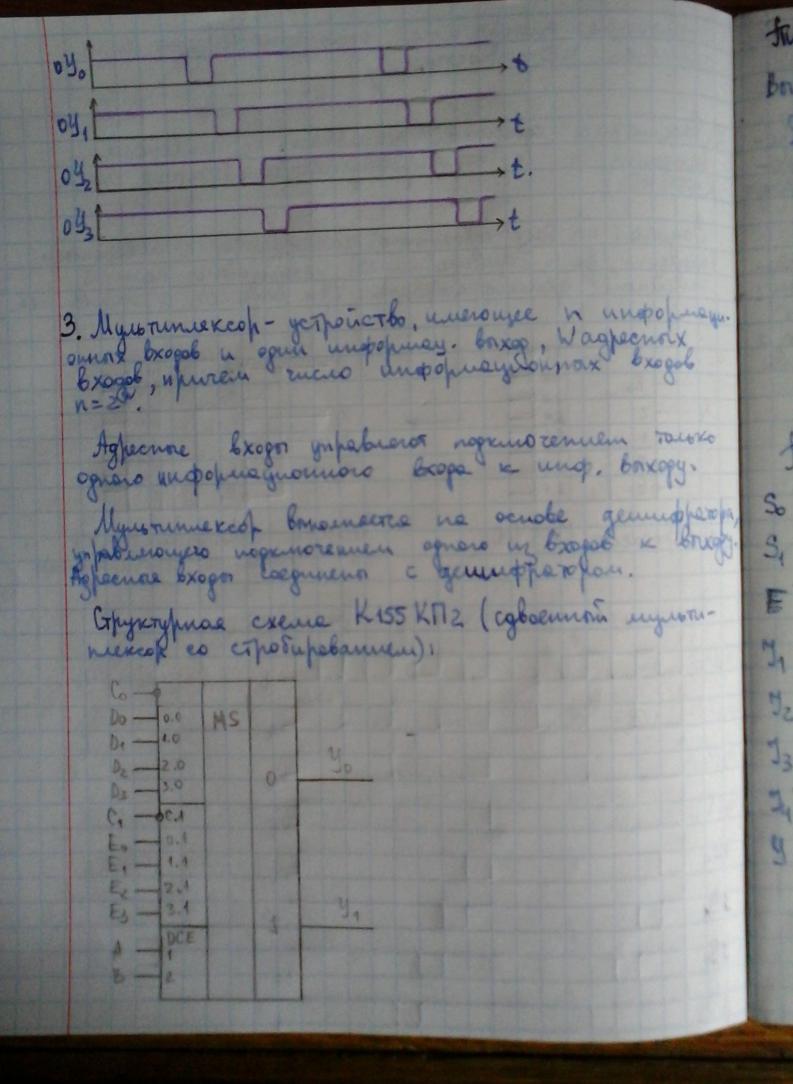 0У₀ t
0У₁ t
0У₂ t.
0У₃ t
3. Мультиплексор - устройство, имеющее n информаци-
онных входов и один информац. выход, W адресных
входов, причем число информационных входов
n=2ᵂ.
Адресные входы управляют подключением только
одного информационного входа к инф. выходу.
Мультиплексор выполняется на основе дешифратора,
управляющего подключением одного из входов к выходу.
Адресные входы соединены с дешифратором.
Структурная схема К155КП2 (сдвоенный мульти-
плексор со стробированием):
C₀
D₀ 0.0 MS
D₁ 1.0
D₂ 2.0 0 У₀
D₃ 3.0
C₁ C.1
E₀ 0.1
E₁ 1.1
E₂ 2.1
E₃ 3.1 1 У₁
DCE
A 1
B 2
S₀
S₁
E
J₁
J₂
J₃
J₄
У